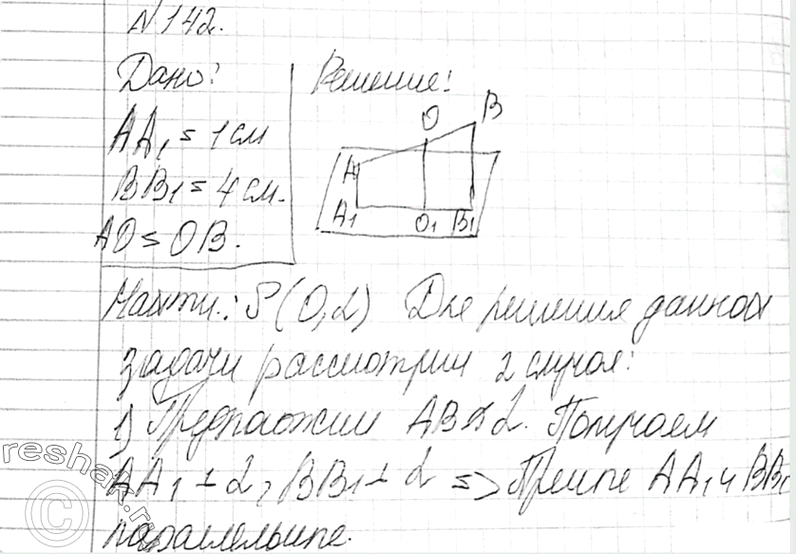 N 142.
Дано: Решение:
AA₁ = 1 см
BB₁ = 4 см.
AO = OB.
O B
A
A₁ O₁ B₁
Найти: P(O,α) Для решения данной
задачи рассмотрим 2 случая:
1) Предположим AB ⊄ α. Получаем
AA₁ ⊥ α, BB₁ ⊥ α => Прямые AA₁ и BB₁
параллельные.
reshak.ru
©